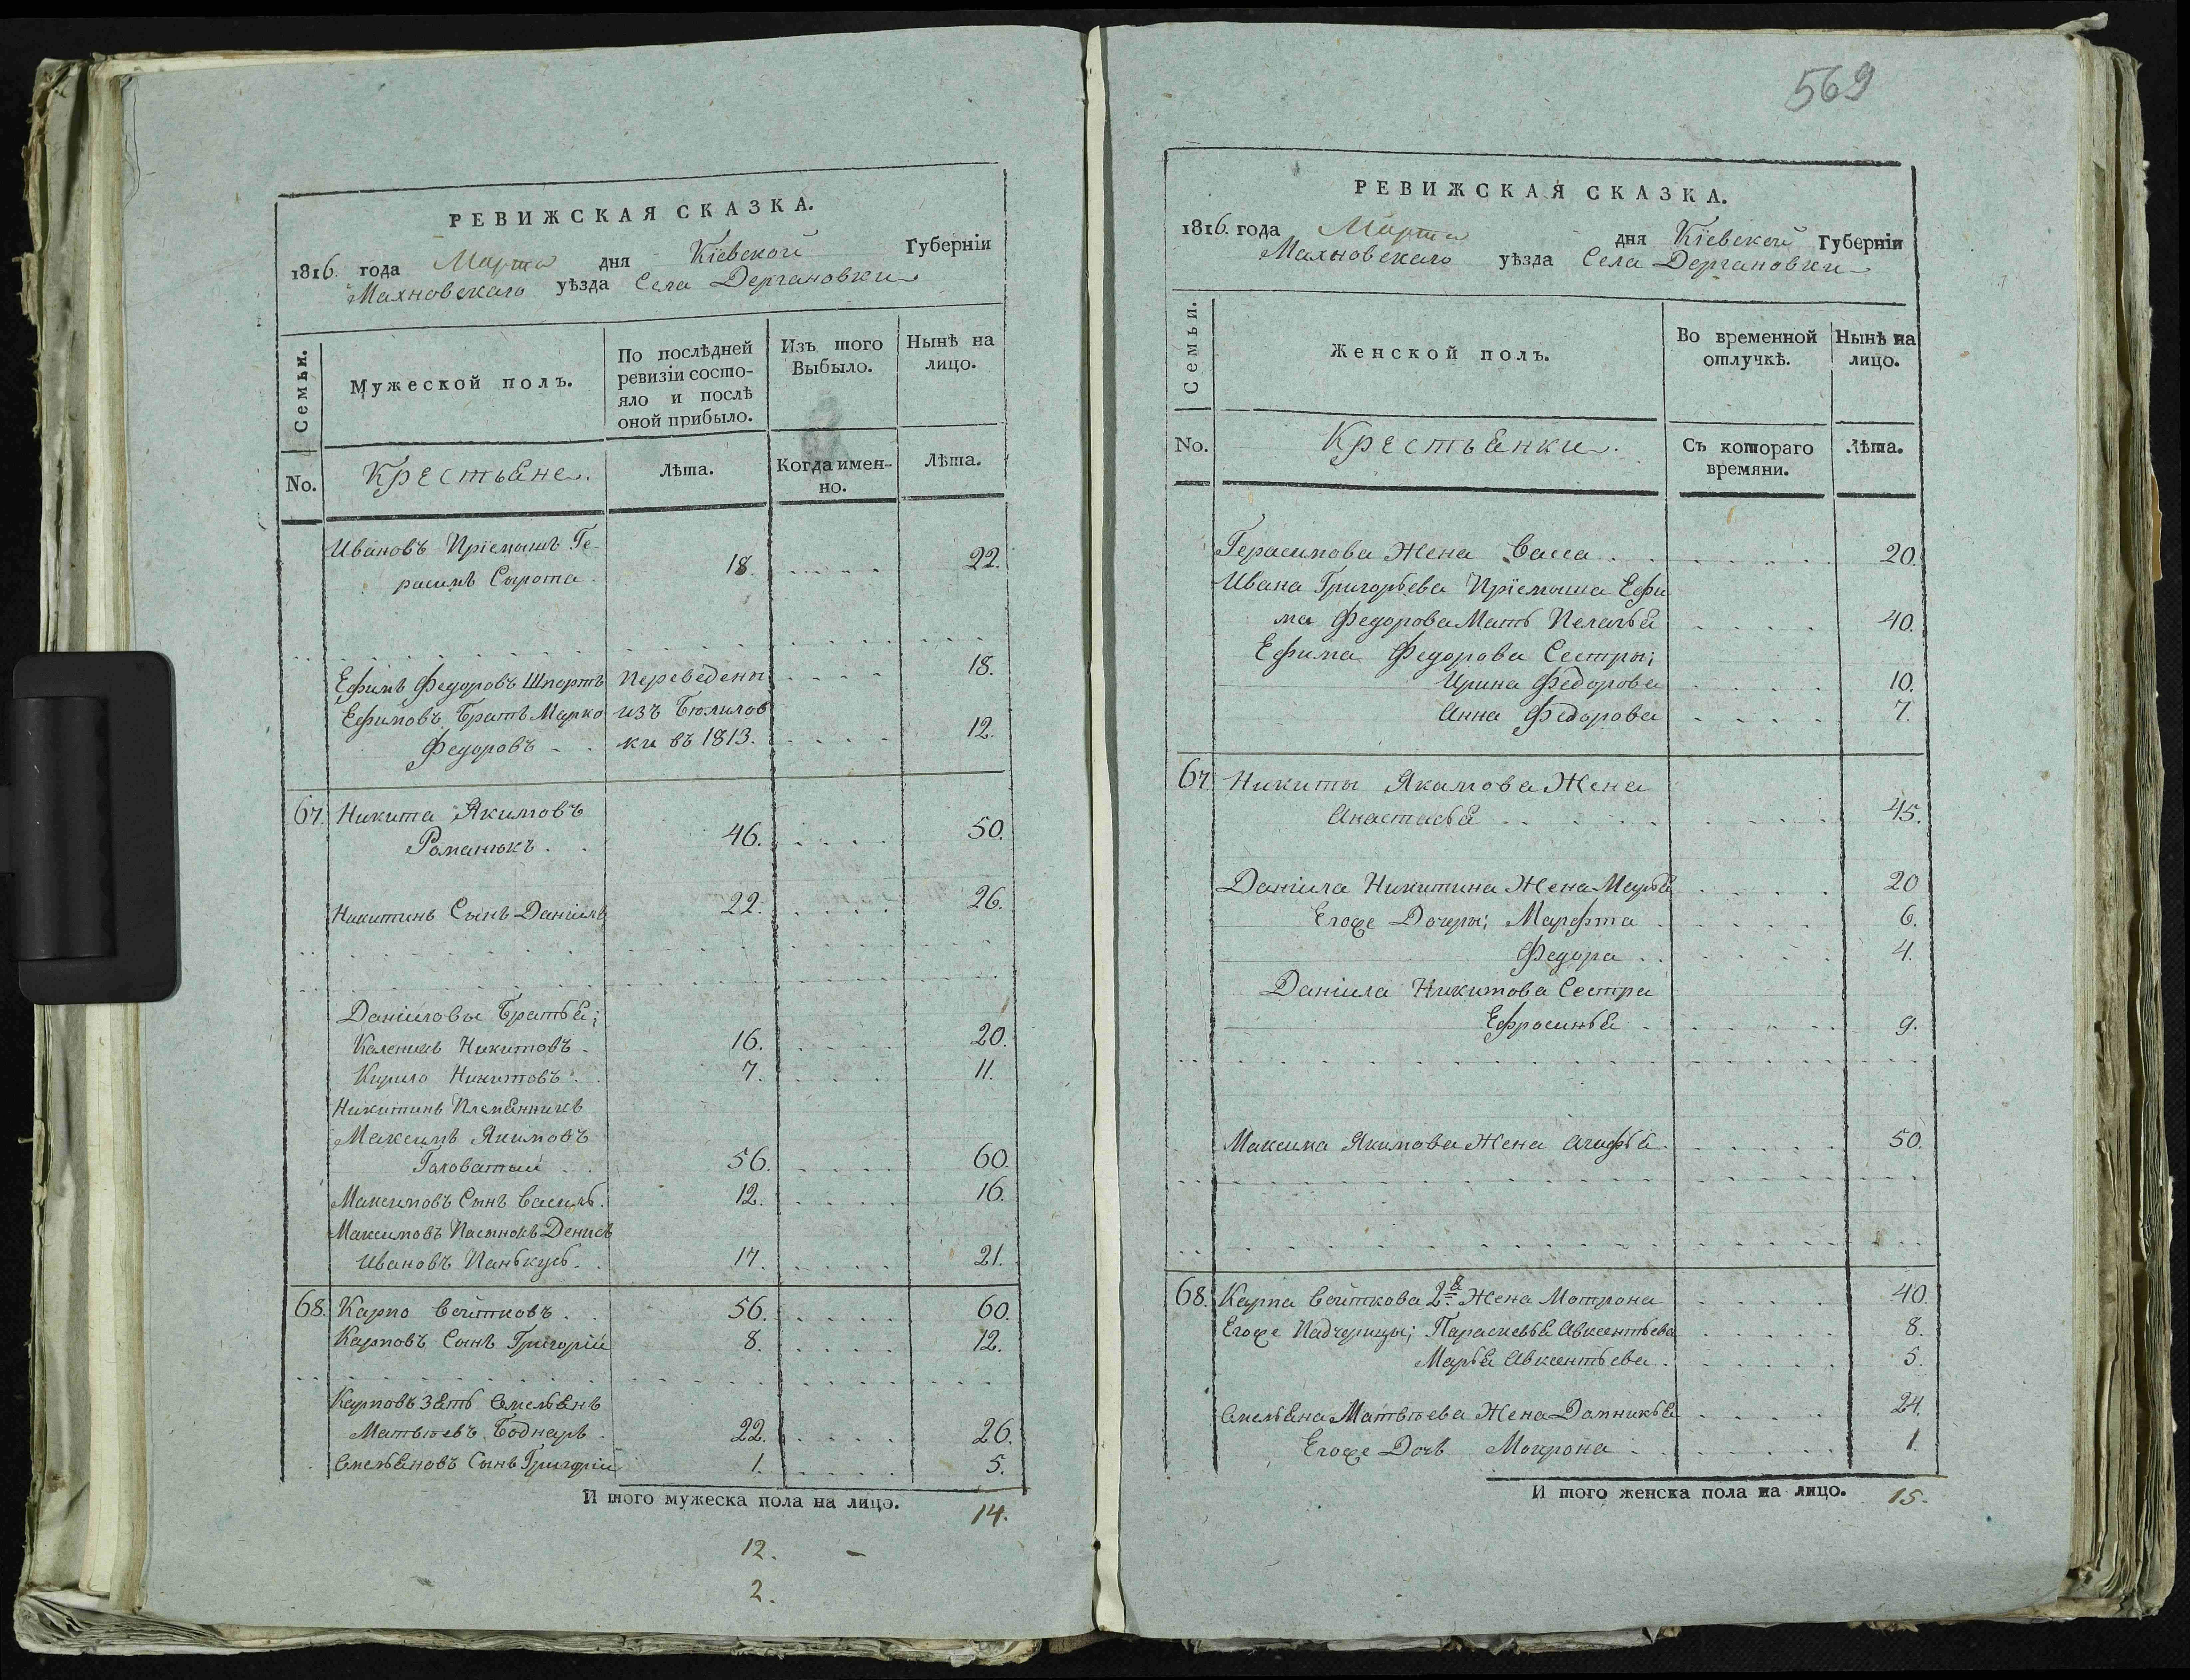 РЕВИЖСКАЯ СКАЗКА.
1816. года Марта дня Кіевской Губерніи
Махновскаго уѣзда Села Дергановки
Семьи.
Мужеской полъ.
По послѣдней
ревизіи состо-
яло и послѣ
оной прибыло.
Изъ того
Выбыло.
Нынѣ на
лицо.
No.
Крестьяне.
Лѣта.
Когда имен-
но.
Лѣта.
Ивановъ Пріемышъ Ге-
расимъ Сырота 18. 22.
Ефимъ Федоровъ Шпортъ Переведены 18.
Ефимовъ Братъ Марко изъ Бюлилов
Федоровъ ки въ 1813. 12.
67. Никита Якимовъ
Романюкъ. 46. 50.
Никитинъ Сынъ Даніилъ 22. 26.
Даніиловы Братья;
Каленикъ Никитовъ 16. 20.
Кирило Никитовъ 7. 11.
Никитинъ Племянникъ
Максимъ Якимовъ
Головатый 56. 60.
Максимовъ Сынъ Василь. 12. 16.
Максимовъ Пасынокъ Денисъ
Ивановъ Панькусь. 17. 21.
68. Карпо Войтковъ 56. 60.
Карповъ Сынъ Григорій 8. 12.
Карповъ Зять Емельянъ
Матвѣевъ Боднаръ 22. 26.
Емельяновъ Сынъ Григорій 1. 5.
И того мужеска пола на лицо. 14.
12. –
2.
569
РЕВИЖСКАЯ СКАЗКА.
1816. года Марта дня Кіевской Губерніи
Махновскаго уѣзда Села Дергановки
Семьи.
Женской полъ.
Во временной
отлучкѣ.
Нынѣ на
лицо.
No.
Крестьянки.
Съ котораго
времяни.
Лѣта.
Герасимова Жена Васса 20.
Ивана Григорьева Пріемыша Ефи
ма Федорова Мать Пелагья 40.
Ефима Федорова Сестры;
Ирина Федорова 10.
Анна Федорова 7.
67. Никиты Якимова Жена
Анастасья 45.
Даніила Никитина Жена Марья 20
Егоже Дочери; Марфта 6.
Федора 4.
Даніила Никитова Сестра
Ефросинья 9.
Максима Якимова Жена Агафья 50.
68. Карпа Войткова 2.я Жена Мотрона 40.
Егоже Падчерицы; Параскевья Авксентьева 8.
Марья Авксентьева. 5.
Емельяна Матвѣева Жена Домникья 24.
Егоже Дочь Мокрона 1.
И того женска пола на лицо. 15.